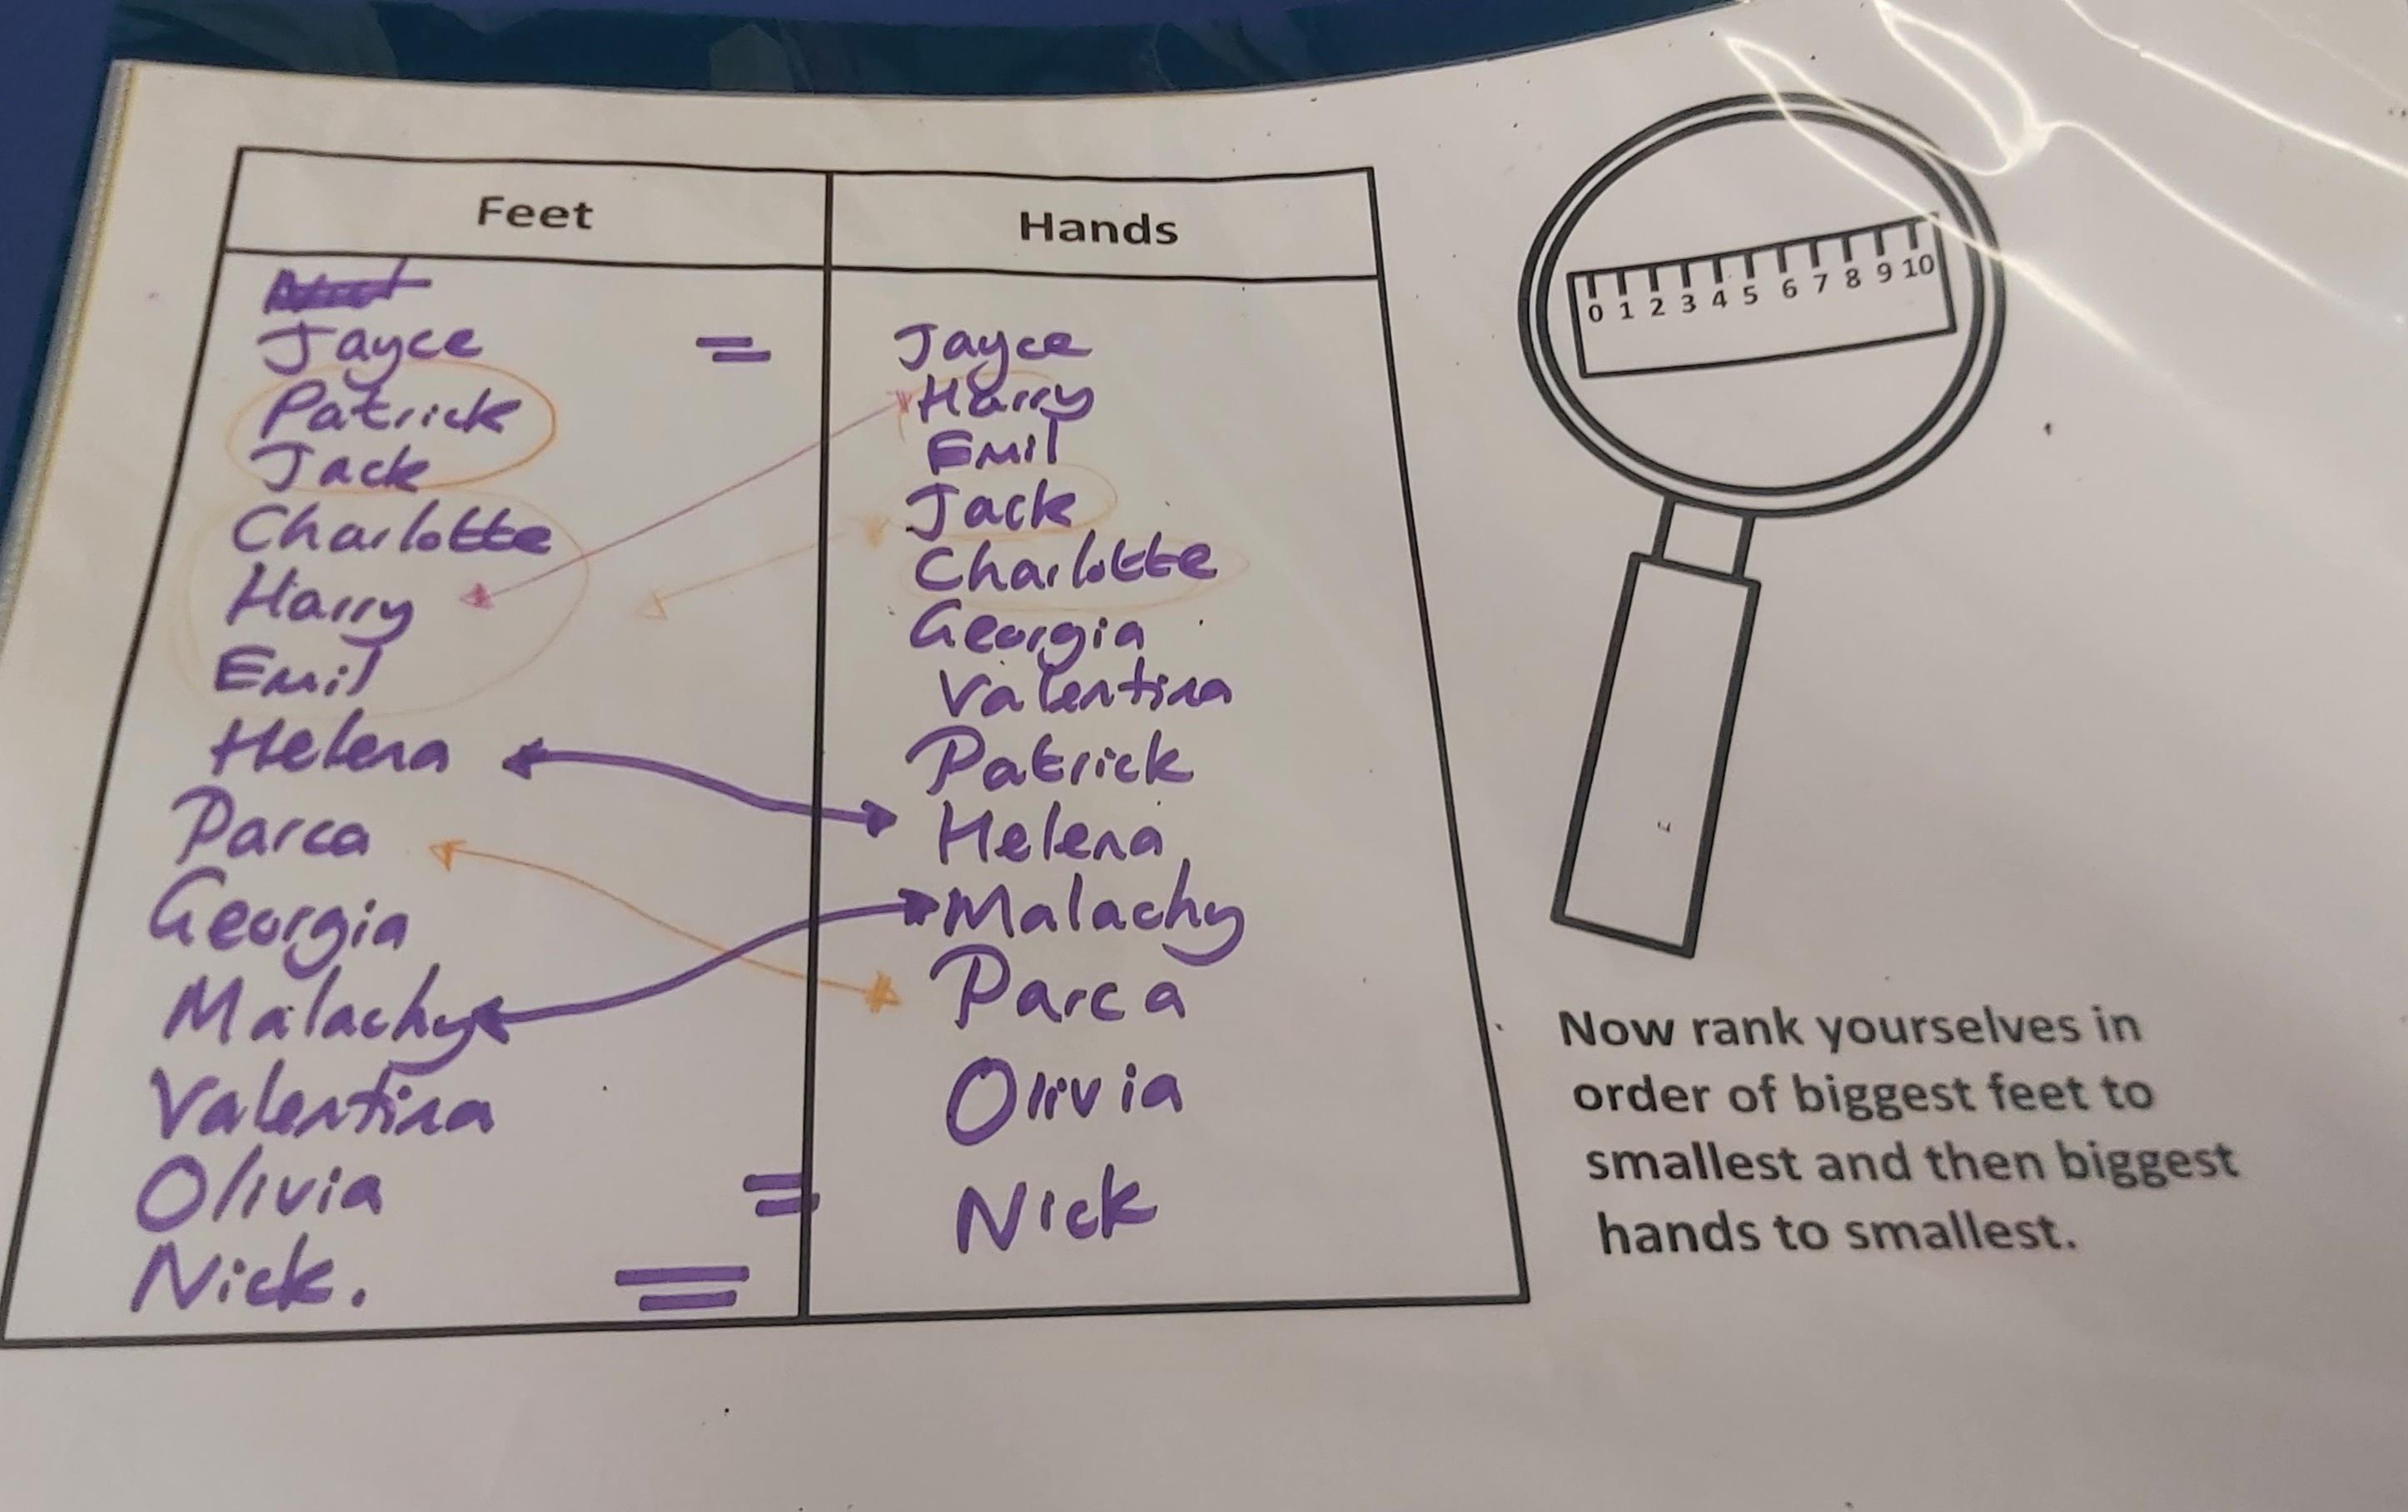 Feet
Hands
Jayce = Jayce
Patrick
Harry
Jack
Emil
Charlotte
Jack
Harry
Charlotte
Emil
Georgia
Helena
Valentina
Parca
Patrick
Georgia
Helena
Malachy
Malachy
Valentina
Parca
Olivia =
Olivia
Nick. =
Nick
0 1 2 3 4 5 6 7 8 9 10
Now rank yourselves in
order of biggest feet to
smallest and then biggest
hands to smallest.